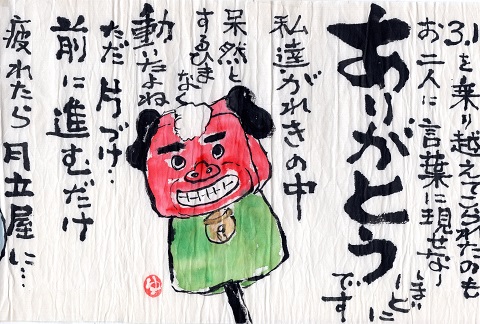 3.11を乗り越えてこられたのも
お二人に言葉に現せない
ほどに
ありがとう
です
私達がれきの中
呆然と
するひまなく
動いたよね
ただ片づけ…
前に進むだけ
疲れたら月立屋に…